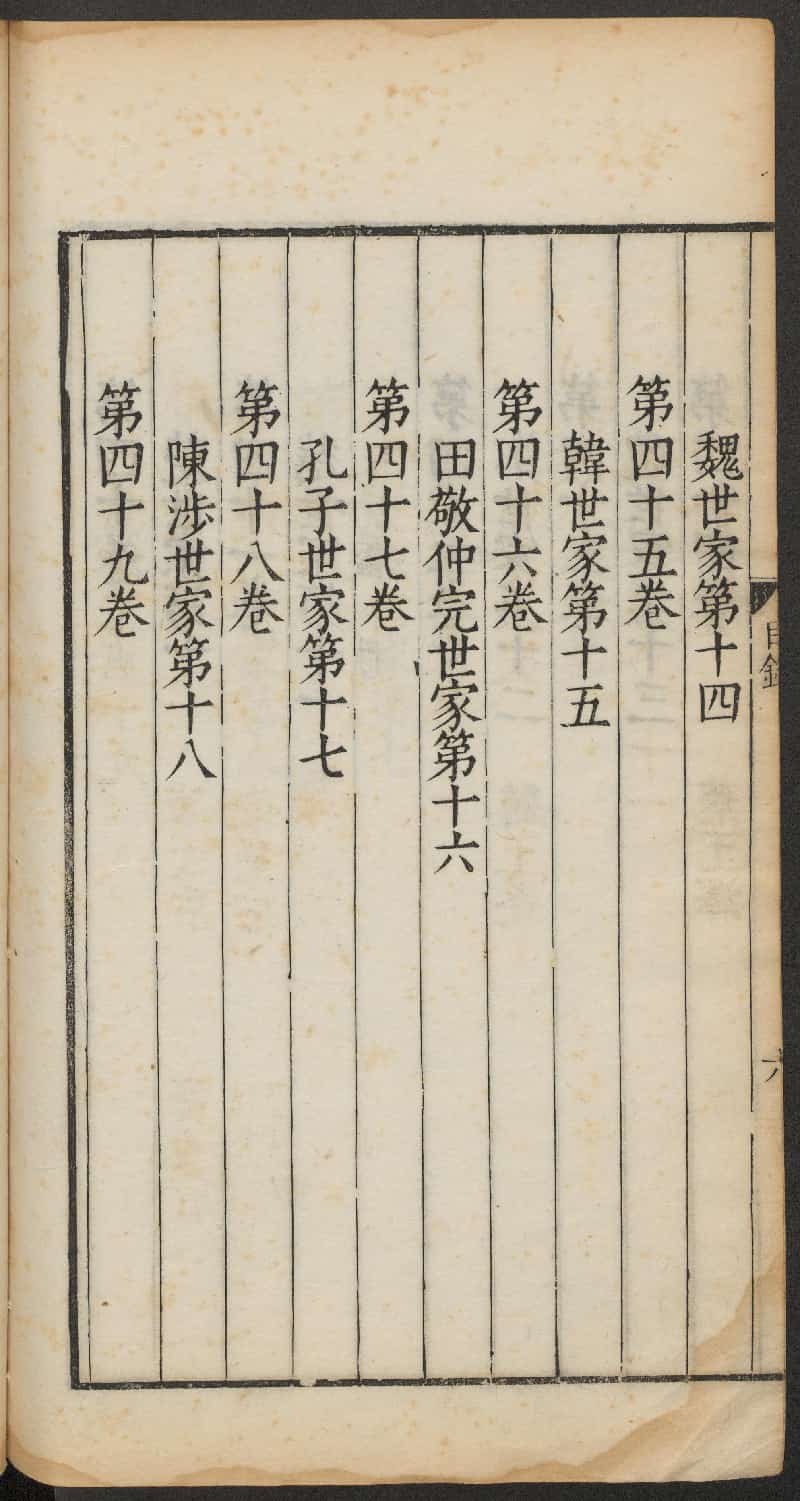 魏世家第十四
第四十五卷
韓世家第十五
第四十六卷
田敬仲完世家第十六
第四十七卷
孔子世家第十七
第四十八卷
陳涉世家第十八
第四十九卷
目錄
六